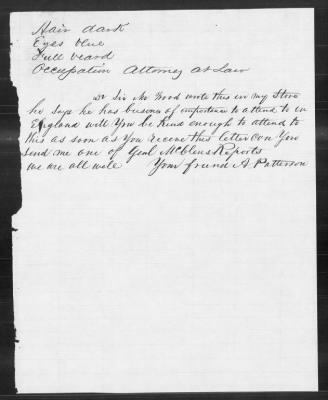 Hair dark
Eyes blue
Full beard
Occupation Attorney at Law
Dr Sir Mr Wood wrote this in my Store
he says he has buisness of importance to attend to in
England will You be Kind enough to attend to
this as soon as You receive this letter Can You
Send me one of Genl McClens Reports
we are all well Your friend A. Patterson